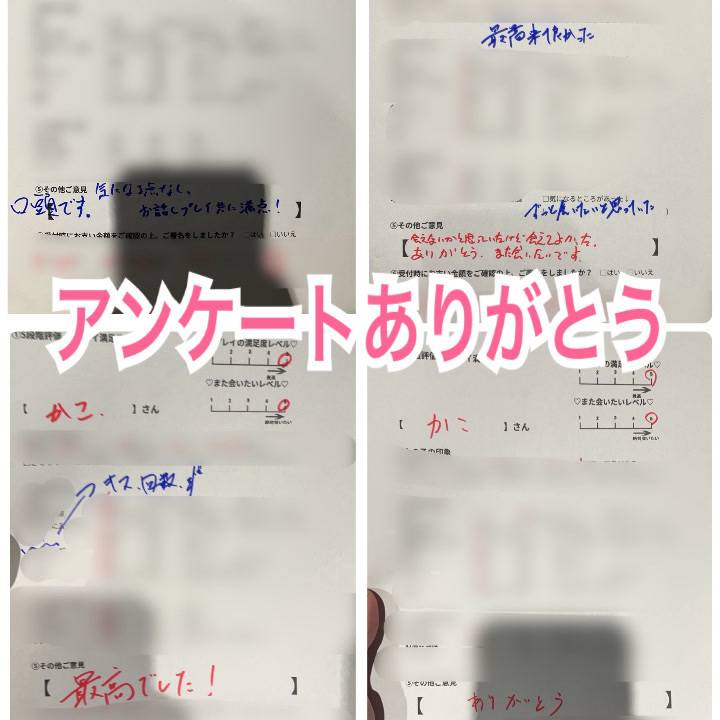 最高来てよかった
⑤その他ご意見
気になる点なし、
口頭です。
お話しプレイ共に満点!
】
お支払い金額をご確認の上、ご署名をしましたか? □はい □いいえ
□気になるところがあった↓
ずっと会いたいと思っていた
)
⑤その他ご意見
【会えないかと思っていたけど会えてよかった。
ありがとう。また会いたいです。
⑥受付時にお支払い金額をご確認の上、ご署名をしましたか? □はい □いいえ
アンケートありがとう
①5段階評価
レイの満足度レベル♡
2 3 4
最高
♡また会いたいレベル♡
1 2 3 4
絶対会いたい
【 かこ. 】さん
キス、回数、
⑤その他ご意見
【 最高でした! 】
の満足度レベル♡
1 2 3 4 5
最高
♡また会いたいレベル♡
1 2 3 4 5
絶対会いたい
【 かこ 】さん
の印象
⑤その他ご意見
【 ありがとう 】